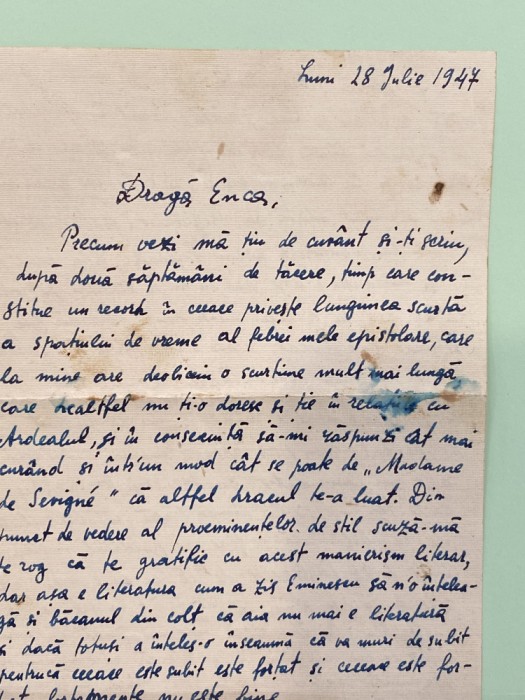 Luni 28 Iulie 1947
Dragă Enca,
Precum vezi mă țin de cuvânt și-ți scriu,
după două săptămâni de tăcere, timp care con-
stitue un record în ceeace privește lungimea scurtă
a spațiului de vreme al febrei mele epistolare, care
la mine are deobiceiu o scurtime mult mai lungă,
care dealtfel nu ți-o doresc și ție în relațiile cu
Ardealul, și în consecință să-mi răspunzi cât mai
curând și într'un mod cât se poate de „Madame
de Sevigné" că altfel dracul te-a luat. Din
punct de vedere al proeminențelor de stil scuză-mă
te rog că te gratific cu acest manierism literar,
dar așa e literatura cum a zis Eminescu să n'o înțelea-
gă și băcanul din colț că aia nu mai e literatură
și dacă totuși a înțeles-o înseamnă că va muri de subit
pentrucă ceeace este subit este forțat și ceeace este for-
nu este bine